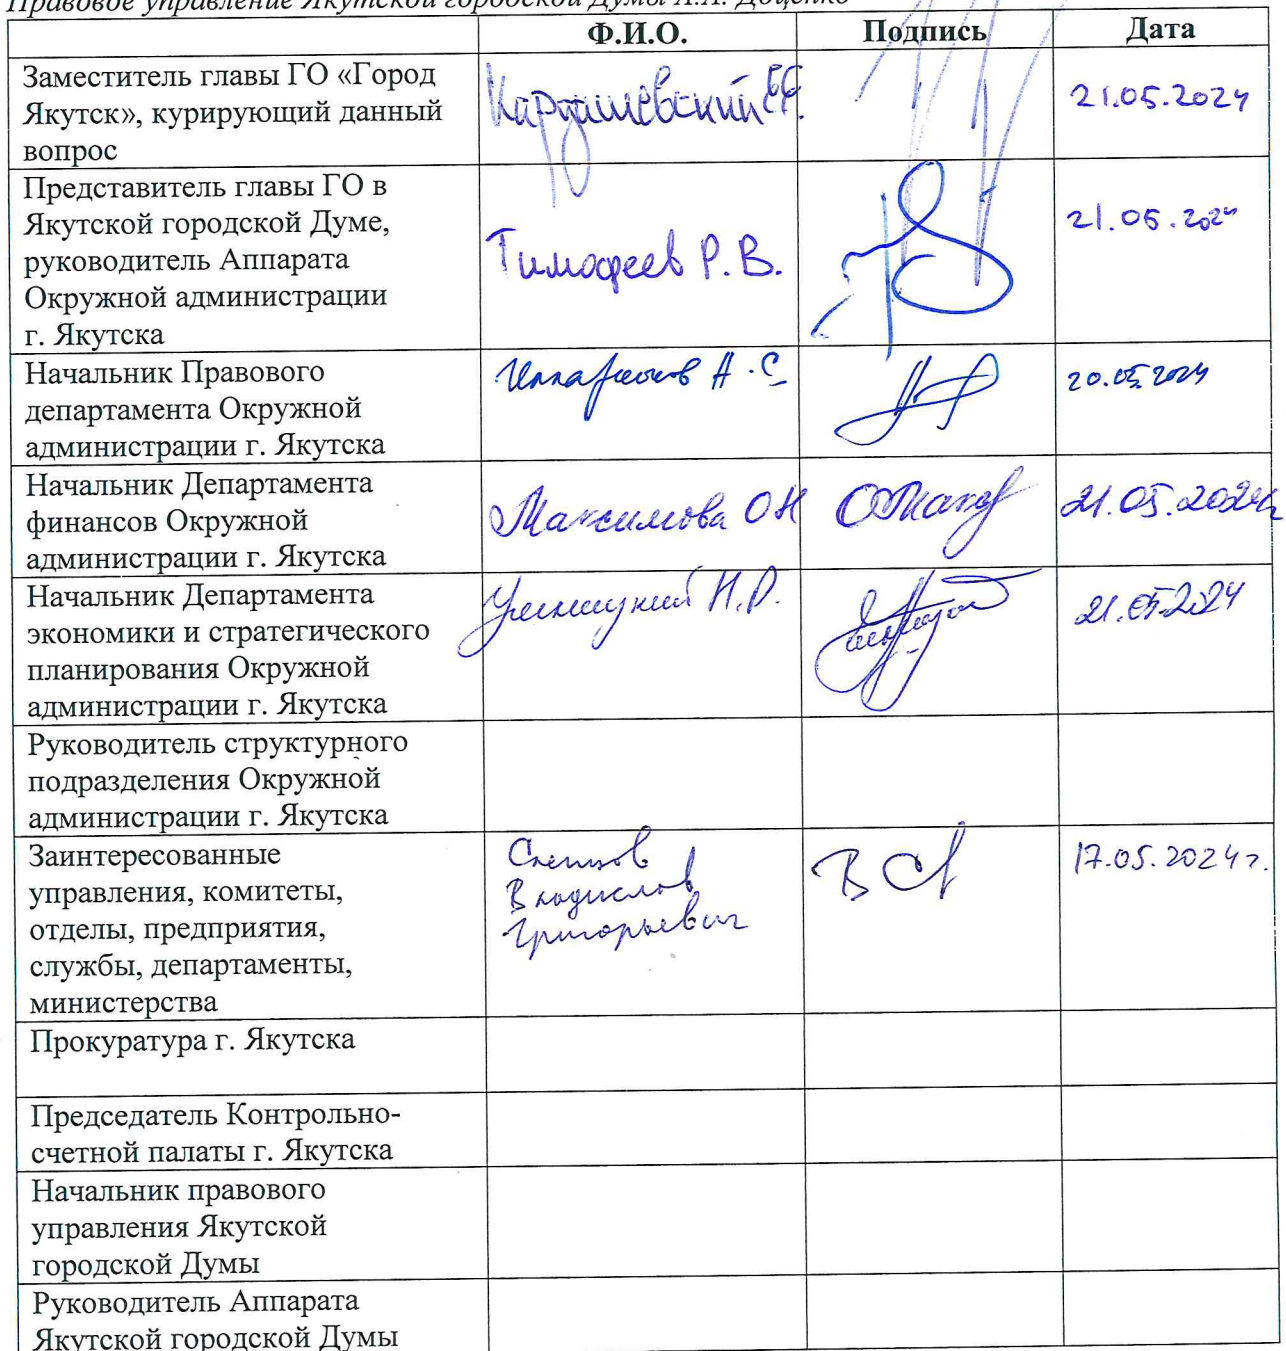 Правовое управление Якутской городской Думы А.А. Доценко
Ф.И.О.
Подпись
Дата
Заместитель главы ГО «Город
Якутск», курирующий данный
вопрос
Кардашевский
21.05.2024
Представитель главы ГО в
Якутской городской Думе,
руководитель Аппарата
Окружной администрации
г. Якутска
Тимофеев Р. В.
21.05.2024
Начальник Правового
департамента Окружной
администрации г. Якутска
Илларионов А. С
20.05.2024
Начальник Департамента
финансов Окружной
администрации г. Якутска
Максимова О Н
21.05.2024г
Начальник Департамента
экономики и стратегического
планирования Окружной
администрации г. Якутска
Н.Р.
21.05.2024
Руководитель структурного
подразделения Окружной
администрации г. Якутска
Заинтересованные
управления, комитеты,
отделы, предприятия,
службы, департаменты,
министерства
Слепцов
Владислав
Григорьевич
17.05.2024г.
Прокуратура г. Якутска
Председатель Контрольно-
счетной палаты г. Якутска
Начальник правового
управления Якутской
городской Думы
Руководитель Аппарата
Якутской городской Думы